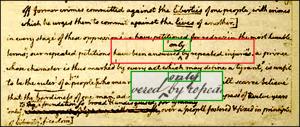 of former crimes committed against the liberties of one people, with crimes
which he urges them to commit against the lives of another]
in every stage of these oppressions we have petitioned for redress in the most humble
only
terms; our repeated petitions have been answered by repeated injuries. a prince
whose character is thus marked by every act which may define a tyrant, is unfit
only
vered by repea
to be the ruler of a people
future ages will scarce believe
that the hardiness of one man
over a people fostered & fixed in principles
of liberty